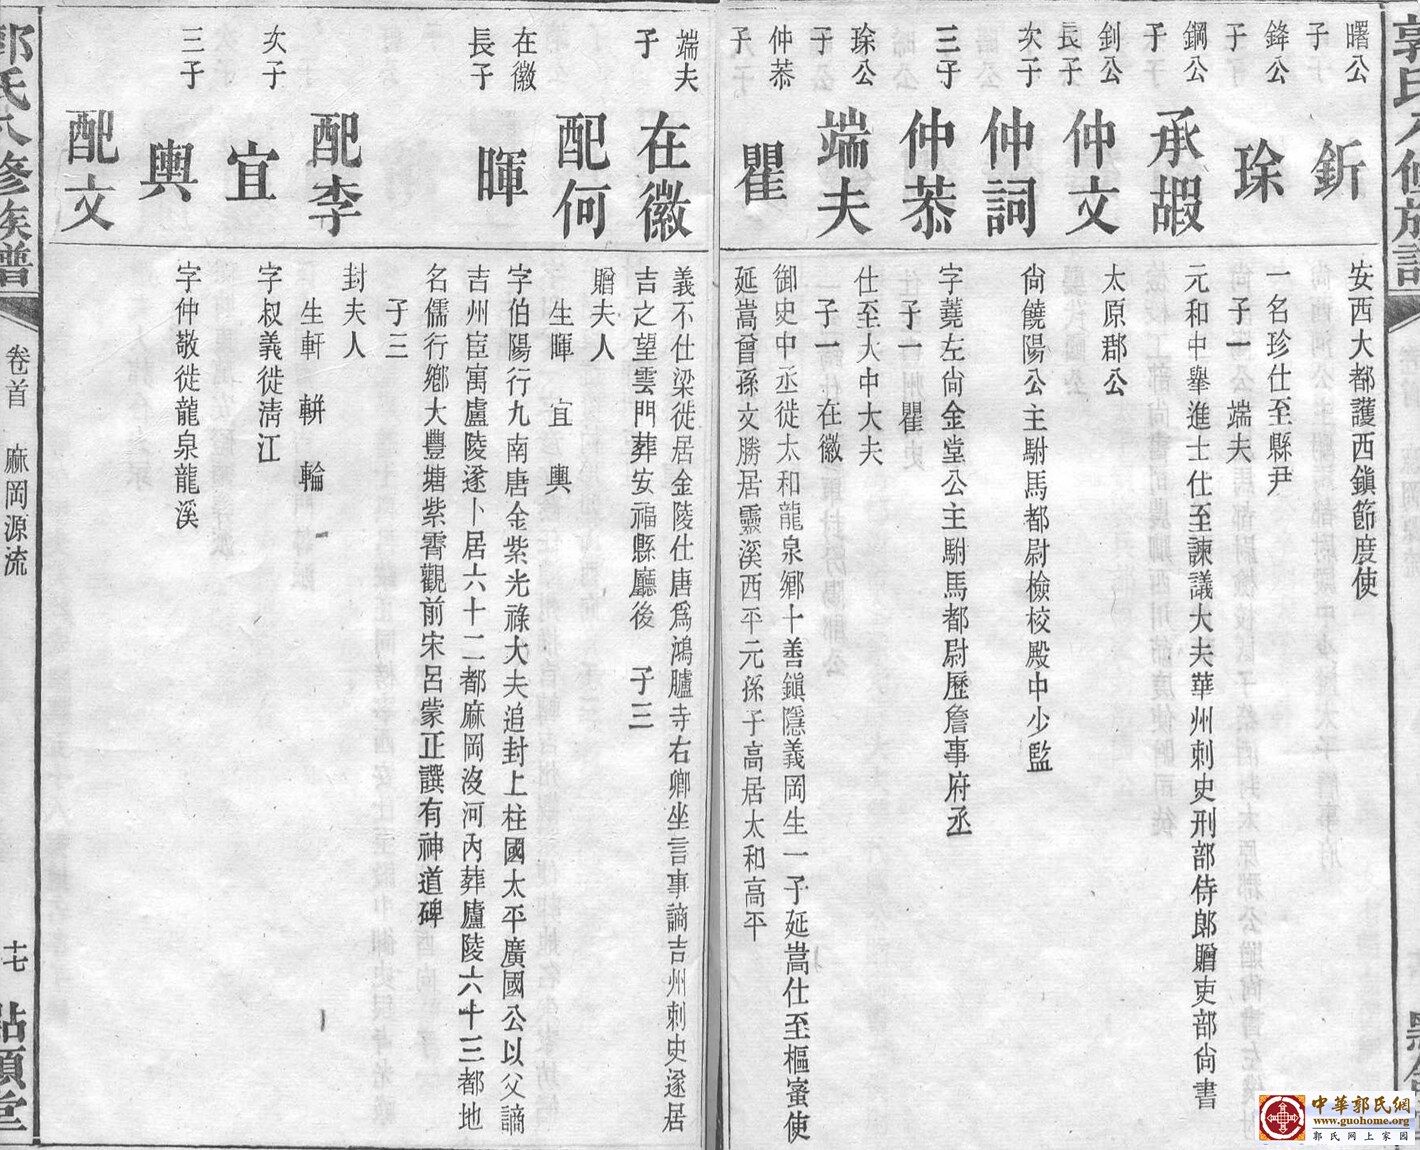 曙公子
釿
安西大都護西鎮節度使
鋒公子
琜
一名珍仕至縣尹
子一 端夫
鋼公子
承嘏
元和中舉進士仕至諫議大夫華州刺史刑部侍郎贈吏部尙書
釗公長子
仲文
太原郡公
次子
仲詞
尙饒陽公主駙馬都尉檢校殿中少監
三子
仲恭
字蕘左尙金堂公主駙馬都尉歷詹事府丞
子一 瞿
琜公子
端夫
仕至大中大夫
子一 在徽
仲恭子
瞿
御史中丞徙太和龍泉鄉十善鎮隱義岡生一子延嵩仕至樞蜜使
延嵩曾孫文勝居靈溪西平元孫子高居太和高平
端夫子
在徽
義不仕梁徙居金陵仕唐爲鴻臚寺右卿坐言事謫吉州刺史遂居
吉之望雲門葬安福縣廳後 子三
配何
贈夫人
生暉 宜 輿
在徽長子
暉
字伯陽行九南唐金紫光祿大夫追封上柱國太平廣國公以父謫
吉州宦寓盧陵遂卜居六十二都麻岡沒河內葬廬陵六十三都地
名儒行鄉大豐塘紫霄觀前宋呂蒙正譔有神道碑
子三
配李
封夫人
生軒 輧 輪
次子
宜
字叔義徙淸江
三子
輿
字仲敬徙龍泉龍溪
配文
郭氏八修族譜
卷首 麻岡源流
十七
點頭堂
中華郭氏網
www.guohome.org
郭氏网上家园